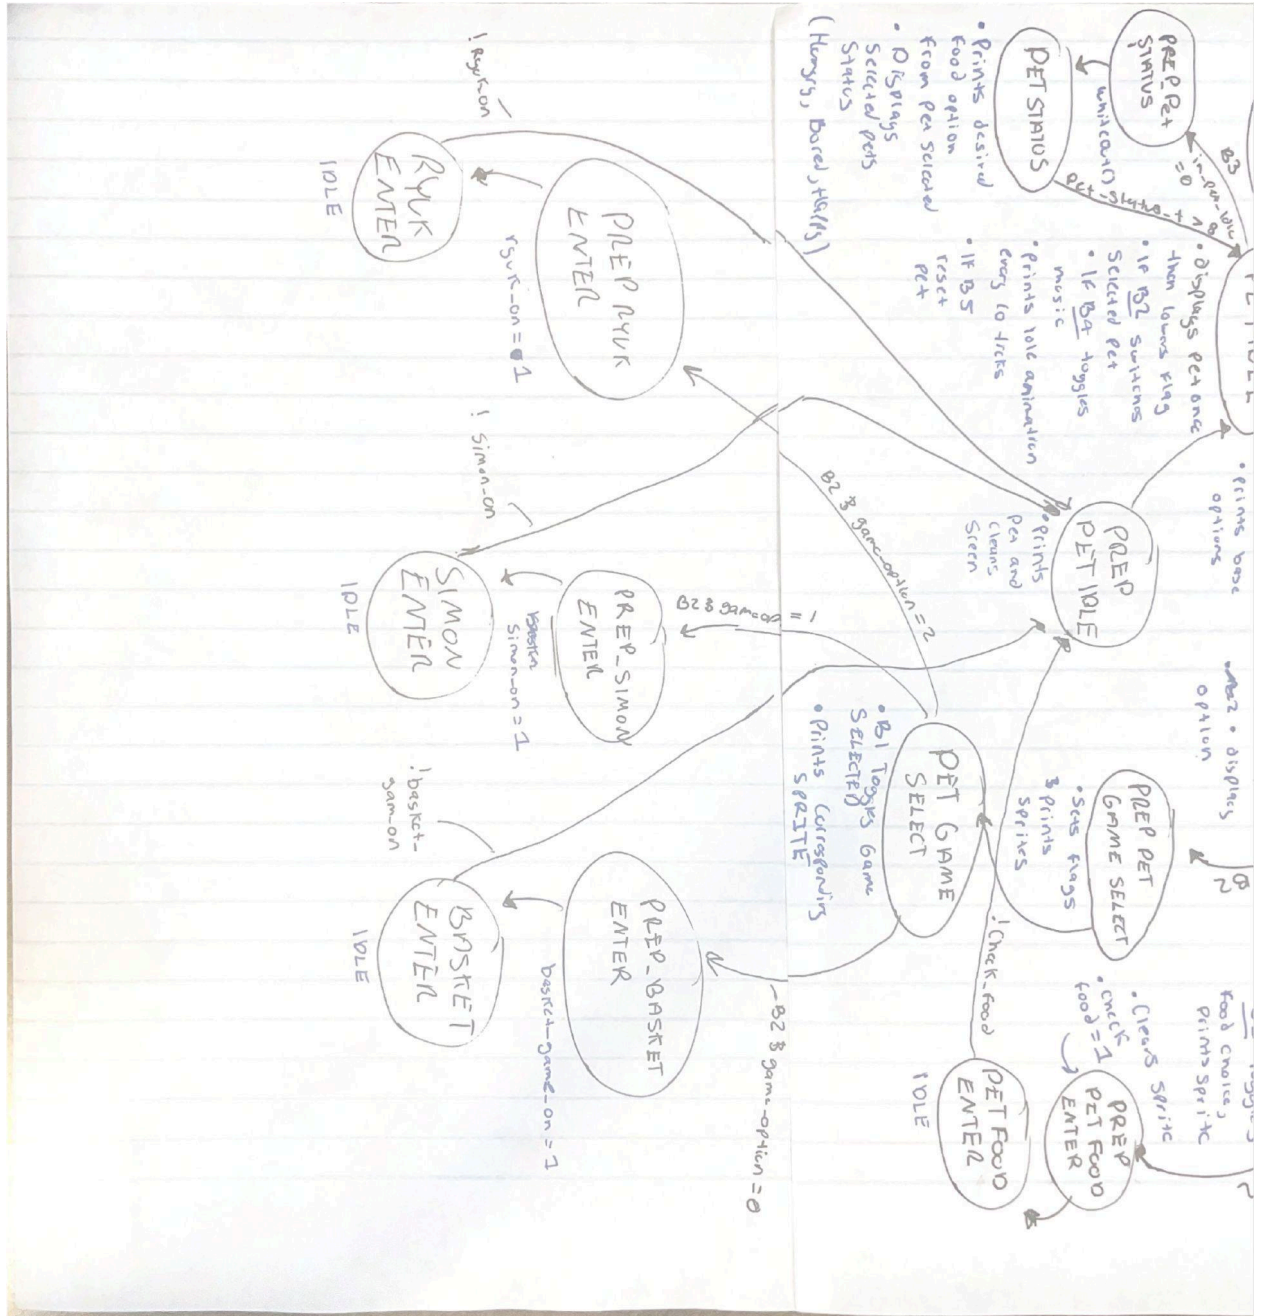 PREP_Pet
STATUS
whitecount1
PET STATUS
• Prints desired
food option
from pet selected
• Displays
selected pets
Status
(Hungry, Bored, Happy)
B3
=0
• displays pet once
then lowers flag
• IF B2 switches
selected pet
• IF B4 toggles
music
• prints idle animation
every 10 ticks
• IF B5
reset
pet
• prints base
options
PREP
PET IDLE
• Prints
Pet and
cleans
Screen
• displays
option
PREP PET
GAME SELECT
• Sets flags
& prints
sprites
PET GAME
SELECT
• B1 Toggles Game
SELECTED
• Prints corresponding
SPRITE
food choice,
prints sprite
• Clears Sprite
• check
food = 1
PREP
PET FOOD
ENTER
!Check_food
PET FOOD
ENTER
IDLE
B2 & game-option = 2
B2 & gameop = 1
B2 & game-option = 0
PREP RYUK
ENTER
ryuk_on = 1
RYUK
ENTER
IDLE
! Ryuk-on
PREP_SIMON
ENTER
Simon-on = 1
SIMON
ENTER
IDLE
! Simon-on
PREP_BASKET
ENTER
basket-game-on = 1
BASKET
ENTER
IDLE
! basket_
gam_on